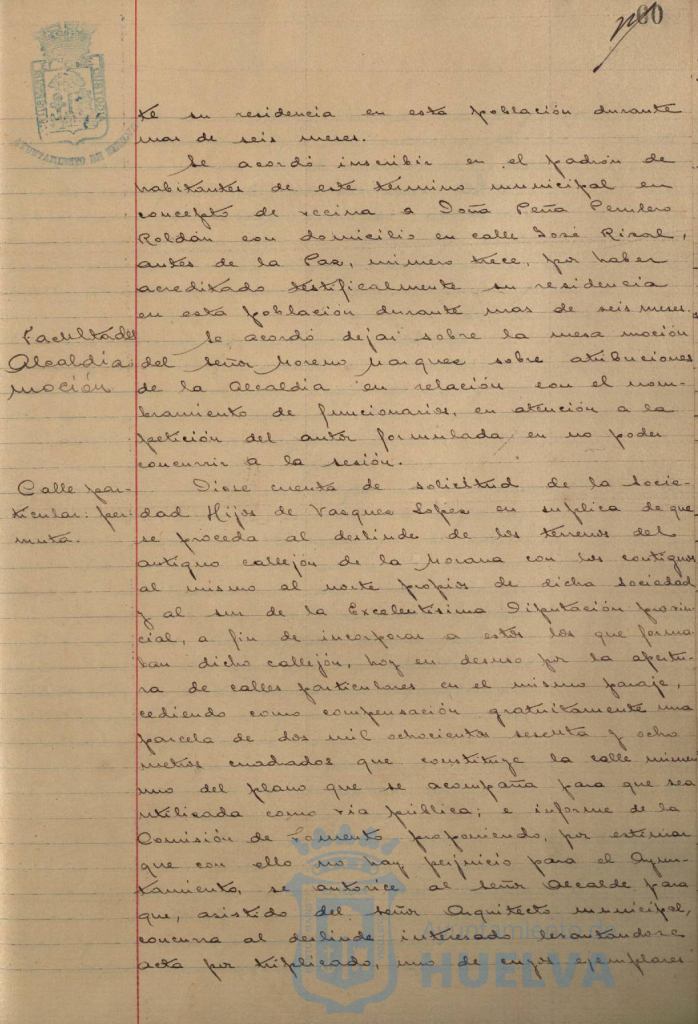 60
te su residencia en esta población durante
mas de seis meses.
Se acordó inscribir en el padrón de
habitantes de este término municipal en
concepto de vecina a Doña Peña Perulero
Roldán con domicilio en calle José Rizal,
antes de la Paz, número trece, por haber
acreditado testificalmente su residencia
en esta población durante mas de seis meses.
Facultades
Alcaldia
moción
Se acordó dejar sobre la mesa moción
del Señor Moreno Marquez sobre atribuciones
de la Alcaldia en relación con el nom-
bramiento de funcionarios, en atención a la
petición del autor formulada en no poder
concurrir a la sesión.
Calle par-
ticular: per-
muta.
Diose cuenta de solicitud de la Socie-
dad Hijos de Vazquez Lopez en suplica de que
se proceda al deslinde de los terrenos del
antiguo callejón de la Morana con los contiguos
al mismo al norte propios de dicha Sociedad
y al sur de la Excelentisima Diputación provin-
cial, a fin de incorporar a estos los que forma-
ban dicho callejón, hoy en desuso por la apertu-
ra de calles particulares en el mismo paraje,
cediendo como compensación gratuitamente una
parcela de dos mil ochocientos sesenta y ocho
metros cuadrados que constituye la calle número
uno del plano que se acompaña para que sea
utilizada como via pública; e informe de la
Comisión de Fomento proponiendo, por estimar
que con ello no hay perjuicio para el Ayun-
tamiento, se autorice al Señor Alcalde para
que, asistido del Señor Arquitecto municipal,
concurra al deslinde interesado levantandose
acta por triplicado, uno de cuyos ejemplares
Ayuntamiento
HUELVA